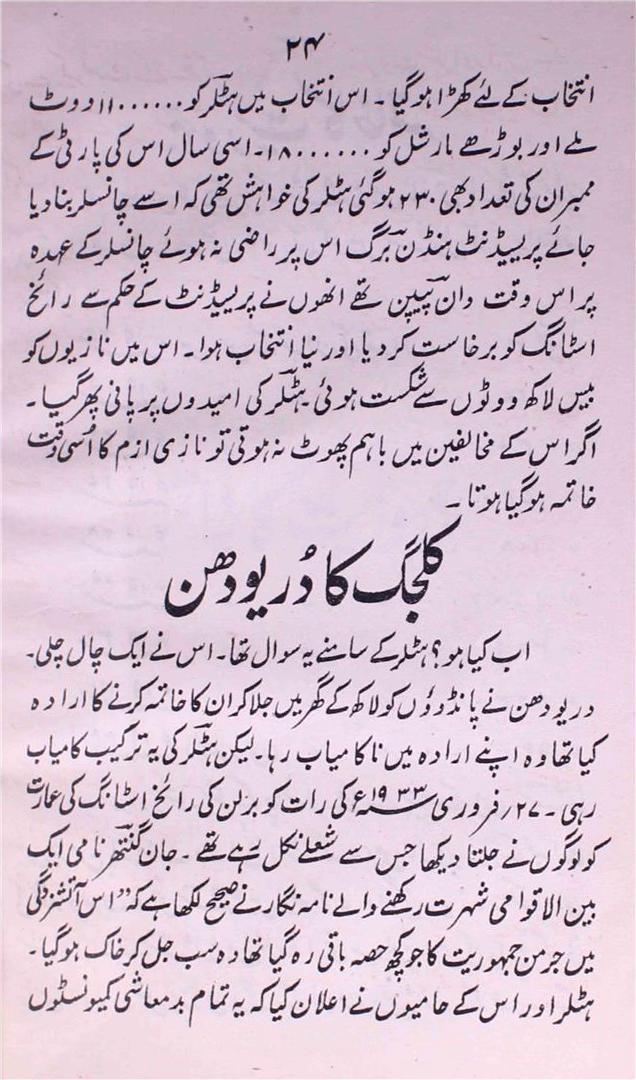 ۲۴
انتخاب کے لئے کھڑا ہو گیا ۔ اس انتخاب میں ہٹلر کو ۱۱۰۰۰۰۰۰ ووٹ
ملے اور بوڑھے مارشل کو ۱۸۰۰۰۰۰۰ ۔ اسی سال اس کی پارٹی کے
ممبران کی تعداد بھی ۲۳۰ ہو گئی ہٹلر کی خواہش تھی کہ اسے چانسلر بنا دیا
جائے پریسیڈنٹ ہنڈن برگ اس پر راضی نہ ہوئے چانسلر کے عہدہ
پر اس وقت وان پیپن تھے انھوں نے پریسیڈنٹ کے حکم سے رائخ
اسٹانگ کو برخاست کر دیا اور نیا انتخاب ہوا ۔ اس میں نازیوں کو
بیس لاکھ ووٹوں سے شکست ہوئی ۔ ہٹلر کی امیدوں پر پانی پھر گیا ۔
اگر اس کے مخالفین میں باہم پھوٹ نہ ہوتی تو نازی ازم کا اُسی وقت
خاتمہ ہو گیا ہوتا ۔
کلجگ کا دُریودھن
اب کیا ہو ؟ ہٹلر کے سامنے یہ سوال تھا ۔ اس نے ایک چال چلی ۔
دریودھن نے پانڈوؤں کو لاکھ کے گھر میں جلا کر ان کا خاتمہ کرنے کا ارادہ
کیا تھا وہ اپنے ارادہ میں ناکامیاب رہا ۔ لیکن ہٹلر کی یہ ترکیب کامیاب
رہی ۔ ۲۷؍ فروری ۱۹۳۳ء کی رات کو برلن کی رائخ اسٹانگ کی عمارت
کو لوگوں نے جلتا دیکھا جس سے شعلے نکل رہے تھے ۔ جان گنتھر نامی ایک
بین الاقوامی شہرت رکھنے والے نامہ نگار نے صحیح لکھا ہے کہ “اس آتشزدگی
میں جرمن جمہوریت کا جو کچھ حصہ باقی رہ گیا تھا وہ سب جل کر خاک ہو گیا ۔
ہٹلر اور اس کے حامیوں نے اعلان کیا کہ یہ تمام بدمعاشی کمیونسٹوں